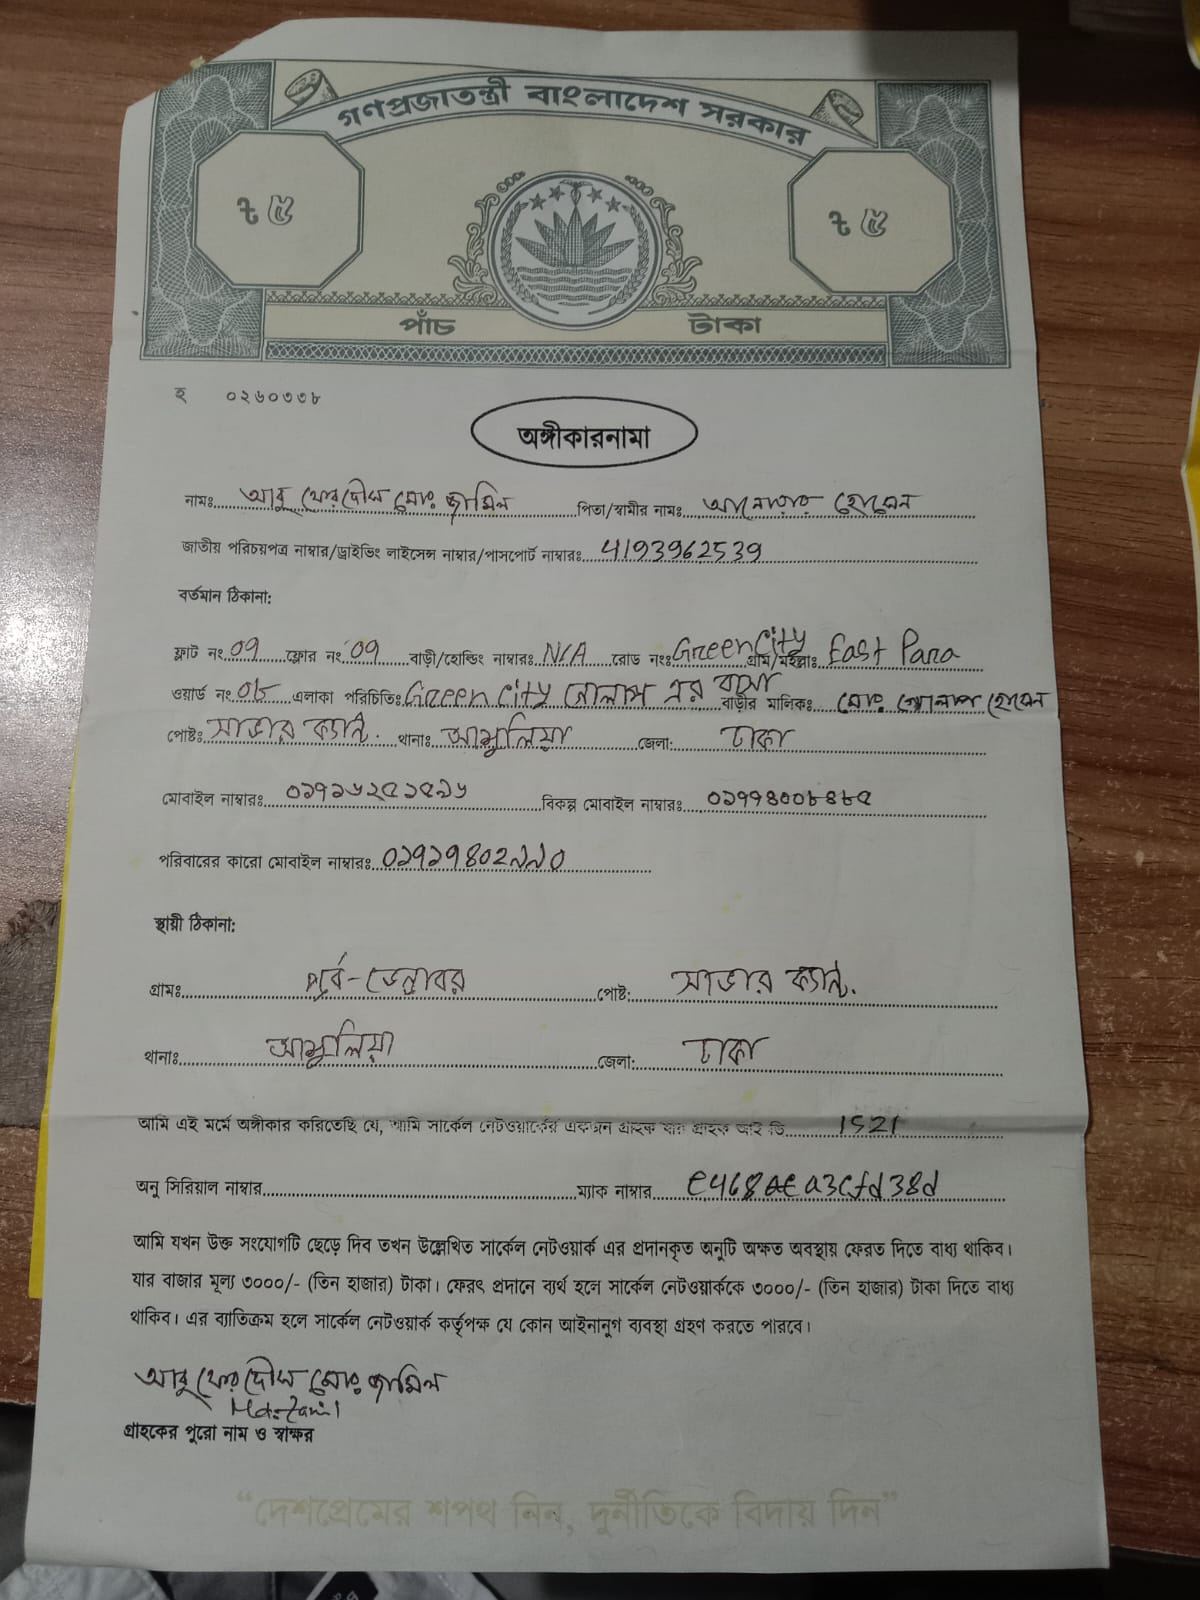 গণপ্রজাতন্ত্রী বাংলাদেশ সরকার
৳ ৫ ৳ ৫
পাঁচ টাকা
হ ০২৬০৩৩৮
অঙ্গীকারনামা
নামঃ আবু ফেরদৌস মোঃ জামিল পিতা/স্বামীর নামঃ আনোয়ার হোসেন
জাতীয় পরিচয়পত্র নাম্বার/ড্রাইভিং লাইসেন্স নাম্বার/পাসপোর্ট নাম্বারঃ 4193962539
বর্তমান ঠিকানা:
ফ্লাট নং 09 ফ্লোর নং 09 বাড়ী/হোল্ডিং নাম্বারঃ N/A রোড নংঃ Green City গ্রাম/মহল্লাঃ East Para
ওয়ার্ড নং ০৮ এলাকা পরিচিতিঃ Green City গোলাপ এর বাসা বাড়ীর মালিকঃ মোঃ গোলাপ হোসেন
পোষ্টঃ সাভার ক্যান্ট. থানাঃ আশুলিয়া জেলা: ঢাকা
মোবাইল নাম্বারঃ ০১৭১৬২৫১৫৯৬ বিকল্প মোবাইল নাম্বারঃ ০১৭৭৪০০৮৪৮৫
পরিবারের কারো মোবাইল নাম্বারঃ
স্থায়ী ঠিকানা:
গ্রামঃ পূর্ব-ডেন্ডাবর পোষ্ট: সাভার ক্যান্ট.
থানাঃ আশুলিয়া জেলা: ঢাকা
আমি এই মর্মে অঙ্গীকার করিতেছি যে, আমি সার্কেল নেটওয়ার্কের একজন গ্রাহক যার গ্রাহক আই ডি 1521
অনু সিরিয়াল নাম্বার ম্যাক নাম্বার
আমি যখন উক্ত সংযোগটি ছেড়ে দিব তখন উল্লেখিত সার্কেল নেটওয়ার্ক এর প্রদানকৃত অনুটি অক্ষত অবস্থায় ফেরত দিতে বাধ্য থাকিব।
যার বাজার মূল্য ৩০০০/- (তিন হাজার) টাকা। ফেরৎ প্রদানে ব্যর্থ হলে সার্কেল নেটওয়ার্ককে ৩০০০/- (তিন হাজার) টাকা দিতে বাধ্য
থাকিব। এর ব্যাতিক্রম হলে সার্কেল নেটওয়ার্ক কর্তৃপক্ষ যে কোন আইনানুগ ব্যবস্থা গ্রহণ করতে পারবে।
আবু ফেরদৌস মোঃ জামিল
গ্রাহকের পুরো নাম ও স্বাক্ষর
“দেশপ্রেমের শপথ নিন, দুর্নীতিকে বিদায় দিন”